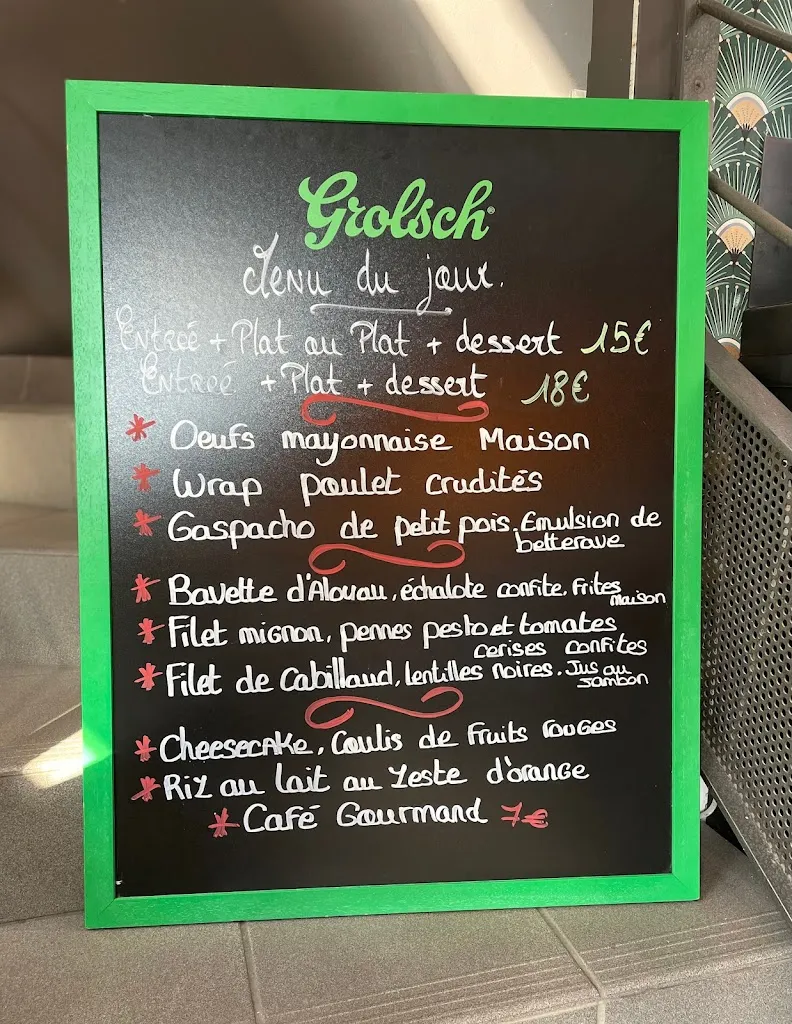 Grolsch
Menu du jour.
Entreé + Plat ou Plat + dessert 15€
Entreé + Plat + dessert 18€
* Oeufs mayonnaise Maison
* Wrap poulet crudités
* Gaspacho de petit pois. Emulsion de
betterave
* Bavette d'Aloyau, échalote confite. Frites
maison
* Filet mignon, pennes pesto et tomates
cerises confites
* Filet de Cabillaud, lentilles noires. Jus au
Jambon
* Cheesecake, Coulis de Fruits rouges
* Riz au lait au Zeste d'orange
* Café Gourmand 7€